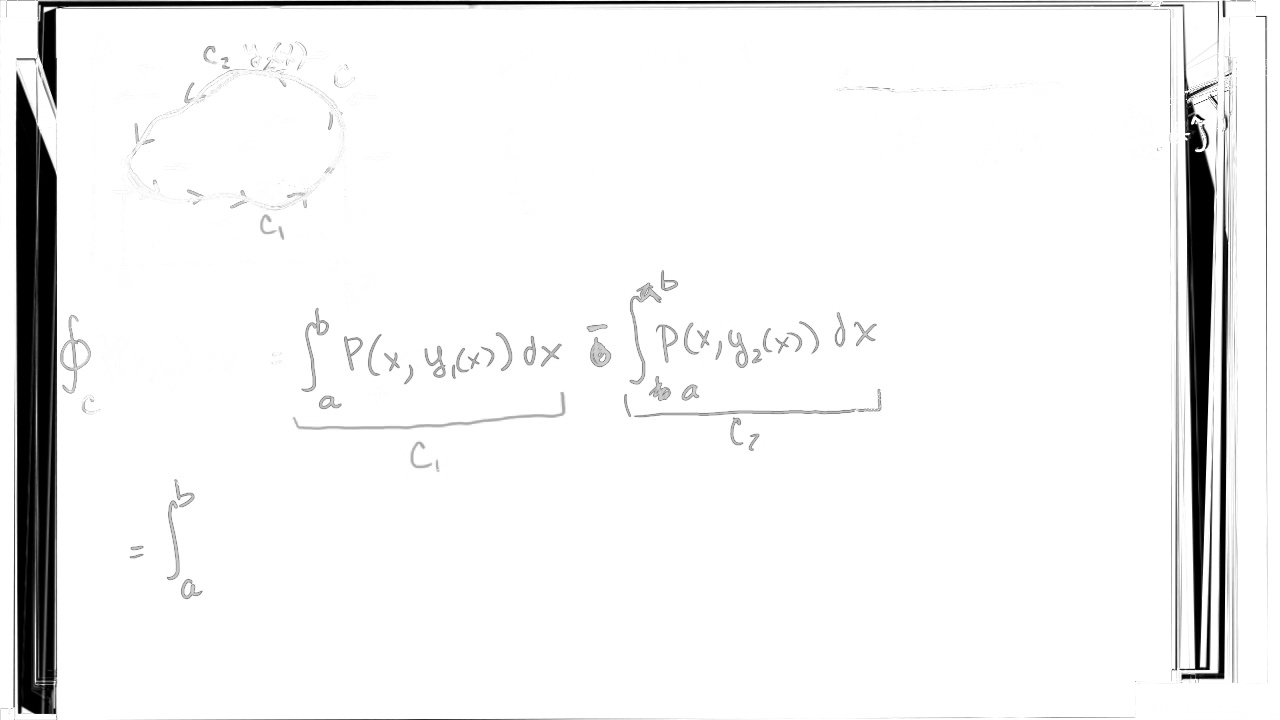 C₂ y₂(x) C
C₁
∮_C = ∫_a^b P(x, y₁(x)) dx − ∫_a^b P(x, y₂(x)) dx
C₁ C₂
= ∫_a^b